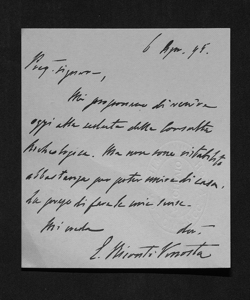 6 Apr. 98.
Preg. Signore,
Mi proponevo di venire
oggi alla seduta della Consulta
Archeologica. Ma non sono ristabilito
abbastanza per poter uscire di casa.
La prego di fare le mie scuse.
Mi creda dev.
E. Visconti Venosta